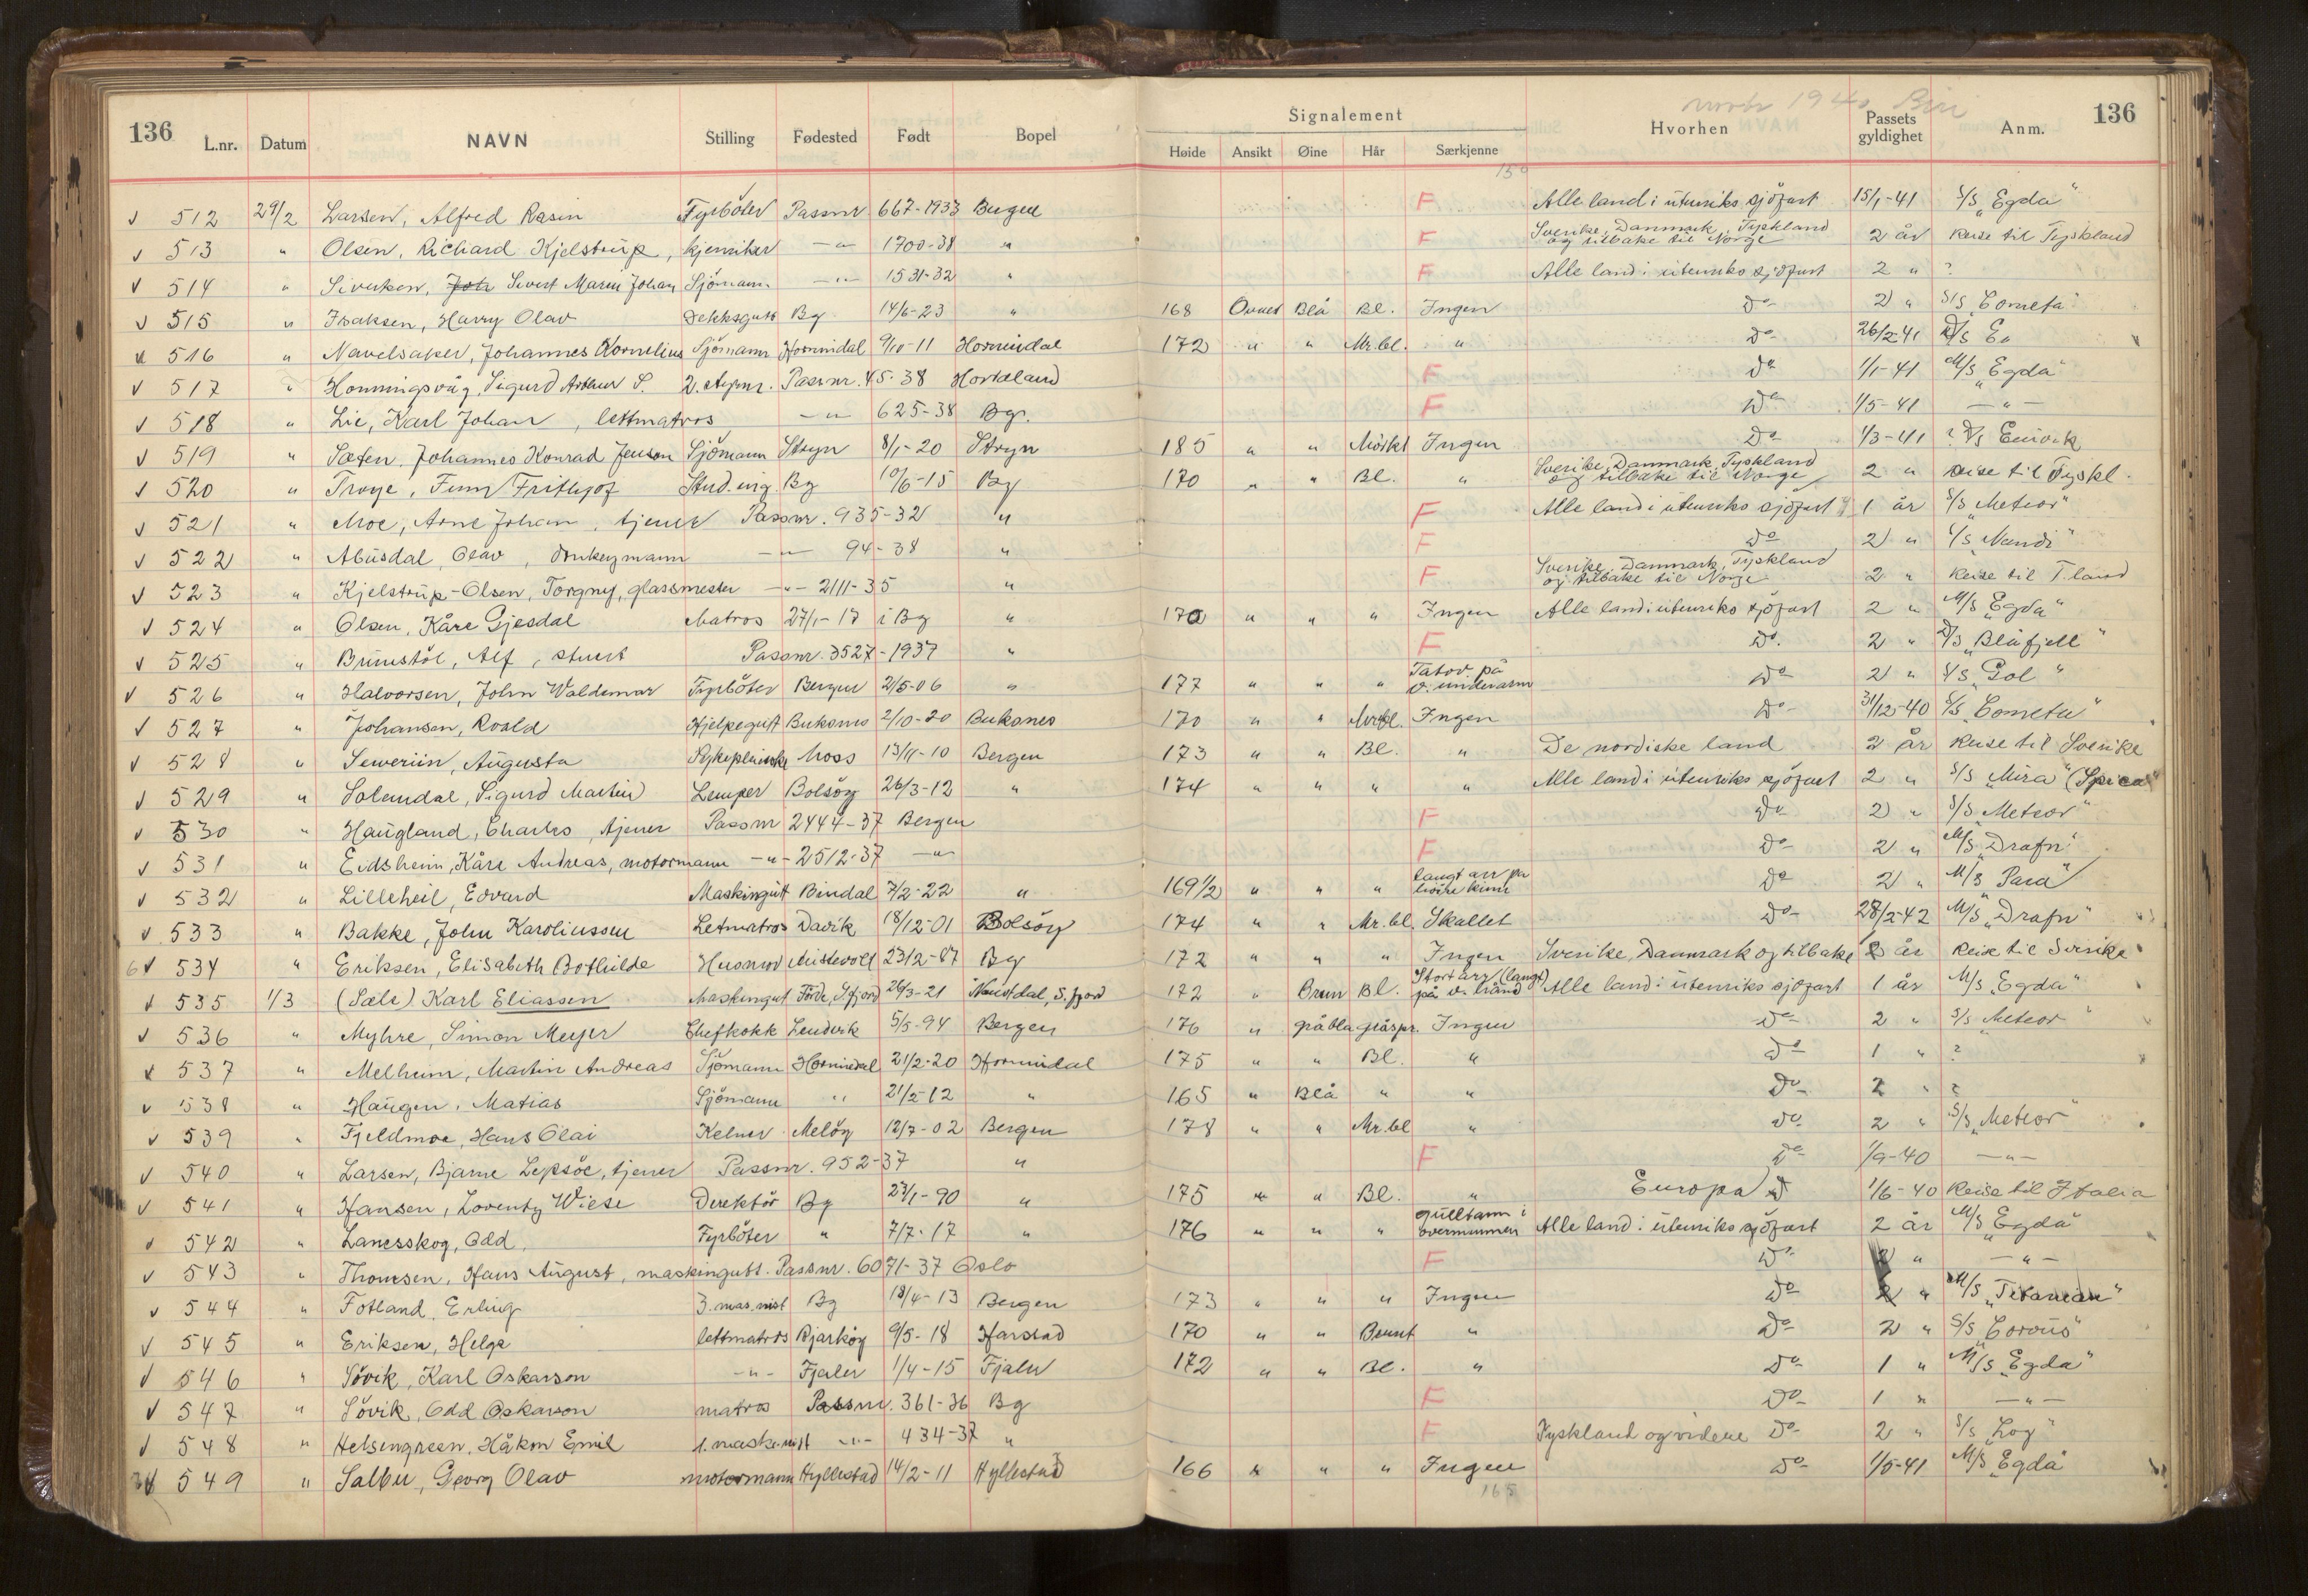 136 L.nr. Datum NAVN Stilling Fødested Født Bopel Signalement Høide Ansikt Øine Hår Særkjenne Hvorhen Passets gyldighet Anm. 136
1940
150
512 29/2 Larsen, Alfred Rasin Fyrböter Passnr 667-1933 Bergen F Alle land i utenriks sjöfart 15/1-41 S/S „Egda"
513 " Olsen, Richard Kjelstrup, kjemiker -"- 1700-38 " F Sverike, Danmark, Tyskland og tilbake til Norge 2 år Reise til Tyskland
514 " Sivertsen, Joh Sivert Marin Johan Sjömann -"- 1531-32 " F Alle land i utenriks sjöfart 2 " ?
515 " Isaksen, Harry Olav Dekksgutt Bg 14/6-23 " 168 Ovalt Blå Bl. Ingen Do- 2 " S/S „Cometa"
516 " Navelsaker, Johannes Kornelius Sjömann Hornindal 9/10-11 Hornindal 172 " " Mr.bl. " Do- 26/2-41 D/S E.
517 " Honningsvåg, Sigurd Arthur S. 2. styrm. Passnr. 45-38 Hordaland F Do 1/1-41 M/S „Egda"
518 " Lie, Karl Johan, lettmatros -"- 625-38 Bg. F Do 1/5-41 -"-
519 " Sæten, Johannes Konrad Jenson Sjömann Stryn 8/1-20 Stryn 185 " " Mörkt Ingen Do 1/3-41 ? D/S
520 " Troye, Finn Frithjof Stud.ing. Bg 10/6-15 Bg 170 " " Bl. " Sverike, Danmark, Tyskland og tilbake til Norge 2 " Reise til Tyskl.
521 " Moe, Arne Johan, tjener Passnr. 935-32 " F Alle land i utenriks sjöfart 1 år S/S „Meteor"
522 " Abusdal, Olav, donkeymann -"- 94-38 " F Do 2 " S/S „Nandi"
523 " Kjelstrup-Olsen, Torgny, glassmester -"- 2111-35 " F Sverike, Danmark, Tyskland og tilbake til Norge 2 " Reise til T.land
524 " Olsen, Kåre Gjesdal Matros 27/1-17 i Bg " 170 " " " Ingen Alle land i utenriks sjöfart 2 " M/S „Egda"
525 " Brunstöl, Alf, stuert Passnr. 3527-1937 " F Do. 2 " D/S „Blåfjell"
526 " Halvorsen, John Waldemar Fyrböter Bergen 2/5-06 " 177 " " " Tatov. på v. underarm Do 2 " S/S „Gol"
527 " Johansen, Roald Hjelpegutt Buksnes 2/10-20 Buksnes 170 " " Mr.bl. Ingen Do- 31/12-40 S/S „Cometa"
528 " Seweriin, Augusta Sykepleierske Moss 13/11-10 Bergen 173 " " Bl. " De nordiske land 2 år Reise til Sverike
529 " Solendal, Sigurd Martin Lemper Bolsöy 26/3-12 " 174 " " " " Alle land i utenriks sjöfart 2 " S/S „Mira" (Spica"
530 " Haugland, Charles, tjener Passnr 2444-37 Bergen F Do 2 " S/S „Meteor"
531 " Eidsheim, Kåre Andreas, motormann -"- 2512-37 -"- F Do- 2 " M/S „Drafn"
532 " Lilleheil, Edvard Maskingutt Bindal 7/2-22 " 169 1/2 " " " langt arr på höire kinn Do 2 " M/S „Para"
533 " Bakke, John Karoliussen Letmatros Davik 18/12-01 Bolsöy 174 " " Mr.bl. Skallet Do- 28/2-42 M/S „Drafn"
534 " Eriksen, Elisabeth Bothilde Husmor 23/2-87 Bg 172 " " " Ingen Sverike, Danmark og tilbake 2 år Reise til Sverike
535 1/3 (Sæle) Karl Eliassen Maskingut Förde, S.fjord 26/3-21 Naustdal, S.fjord 172 " Brun Bl. Stort arr (langt) på v. hånd Alle land i utenriks sjöfart 1 år M/S „Egda"
536 " Myhre, Simon Meyer Chefkokk Lendvik 5/5-94 Bergen 176 " gråblå gråspr. Ingen Do- 2 " S/S „Meteor"
537 " Melheim, Martin Andreas Sjömann Hornindal 21/2-20 Hornindal 175 " " Bl. " Do- 1 " ?
538 " Haugen, Matias Sjömann " 21/2-12 " 165 " Blå " " Do- 2 " ?
539 " Fjeldmoe, Hans Olai Kelner Melöy 12/7-02 Bergen 178 " " Mr.bl " Do 2 " S/S „Meteor"
540 " Larsen, Bjarne Lepsöe, tjener Passnr. 952-37 " F Do 1/9-40 -"-
541 " Hansen, Loventy Wiese Direktör Bg 27/1-90 " 175 " " Bl. " Europa 1/6-40 Reise til Italia
542 " Lanesskog, Odd Fyrböter " 7/7-17 " 176 " " " gulltann i overmunnen Alle land i utenriks sjöfart 2 år M/S „Egda"
543 " Thomsen, Hans August, maskingutt. Passnr. 6071-37 Oslo F Do 2 " -"-
544 " Fotland, Erling 3. mas.nist Bg 18/4-13 Bergen 173 " " " Ingen Do 2 " M/S „Titanian"
545 " Eriksen, Helge lettmatros Bjarköy 9/5-18 Harstad 170 " " Brunt " Do- 2 " S/S „Corvus"
546 " Sövik, Karl Oskarson -"- Fjaler 1/4-15 Fjaler 172 " " Bl. " Do 1 " M/S „Egda"
547 " Sövik, Odd Oskarson matros Passnr. 361-36 Bg F Do 1 " -"-
548 " Helsengreen, Håkon Emil 1. maskinist -"- 434-37 " F Tyskland og videre Do- 2 " S/S „Log"
549 " Salbu, Georg Olav motormann Hyllestad 14/2-11 Hyllestad 166 " " " Ingen Do- 1/5-41 M/S „Egda"
165